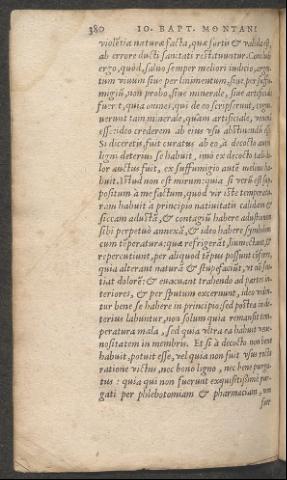 380 IO. BAPT. MONTANI
violētia naturæ facta, quæ fortis & valida est,
ab errore ducti sanitati restituuntur. Concludo
ergo, quòd, saluo semper meliori iudicio, argen-
tum uiuum siue per linimentum, siue per suffu-
migiũ, non probo, siue minerale, siue artificiale
fuerit, quia omnes, qui de eo scripserunt, cogno-
uerunt tam minerale, quàm artificiale, venenũ
esse: ideo crederem ab eius vsu abstinendũ esse.
Si diceretis, fuit curatus ab eo, à decocto autem
ligni deterius se habuit, imò ex decocto talis do-
lor auctus fuit, ex suffumigio autē melius ha-
buit. Istud non est mirum: quia si verũ est sup-
positum à me factum, quòd vir iste tempera-
tum habuit à principio natiuitatis calidam &
siccam adustã, & contagiũ habere adustionem
sibi perpetuò annexã, & ideo habere symbolum
cum tēperatura: quæ refrigerãt, humectant, &
repercutiunt, per aliquod tēpus possunt iuuare,
quia alterant naturã & stupefaciũt, vt nõ sen-
tiat dolorē: & euacuant trahendo ad partes in-
teriores, & per sputum excernunt, ideo uide-
tur bene se habere in principio: sed postea in de-
terius labuntur, non solum quia remansit tem-
peratura mala, sed quia vltra ea habuit vene-
nositatem in membris. Et si à decocto non bene
habuit, potuit esse, vel quia non fuit vsus recta
ratione victus, nec bono ligno, nec bene purga-
tus: quia qui non fuerunt exquisitissimè pur-
gati per phlebotomiam & pharmaciam, non
fue